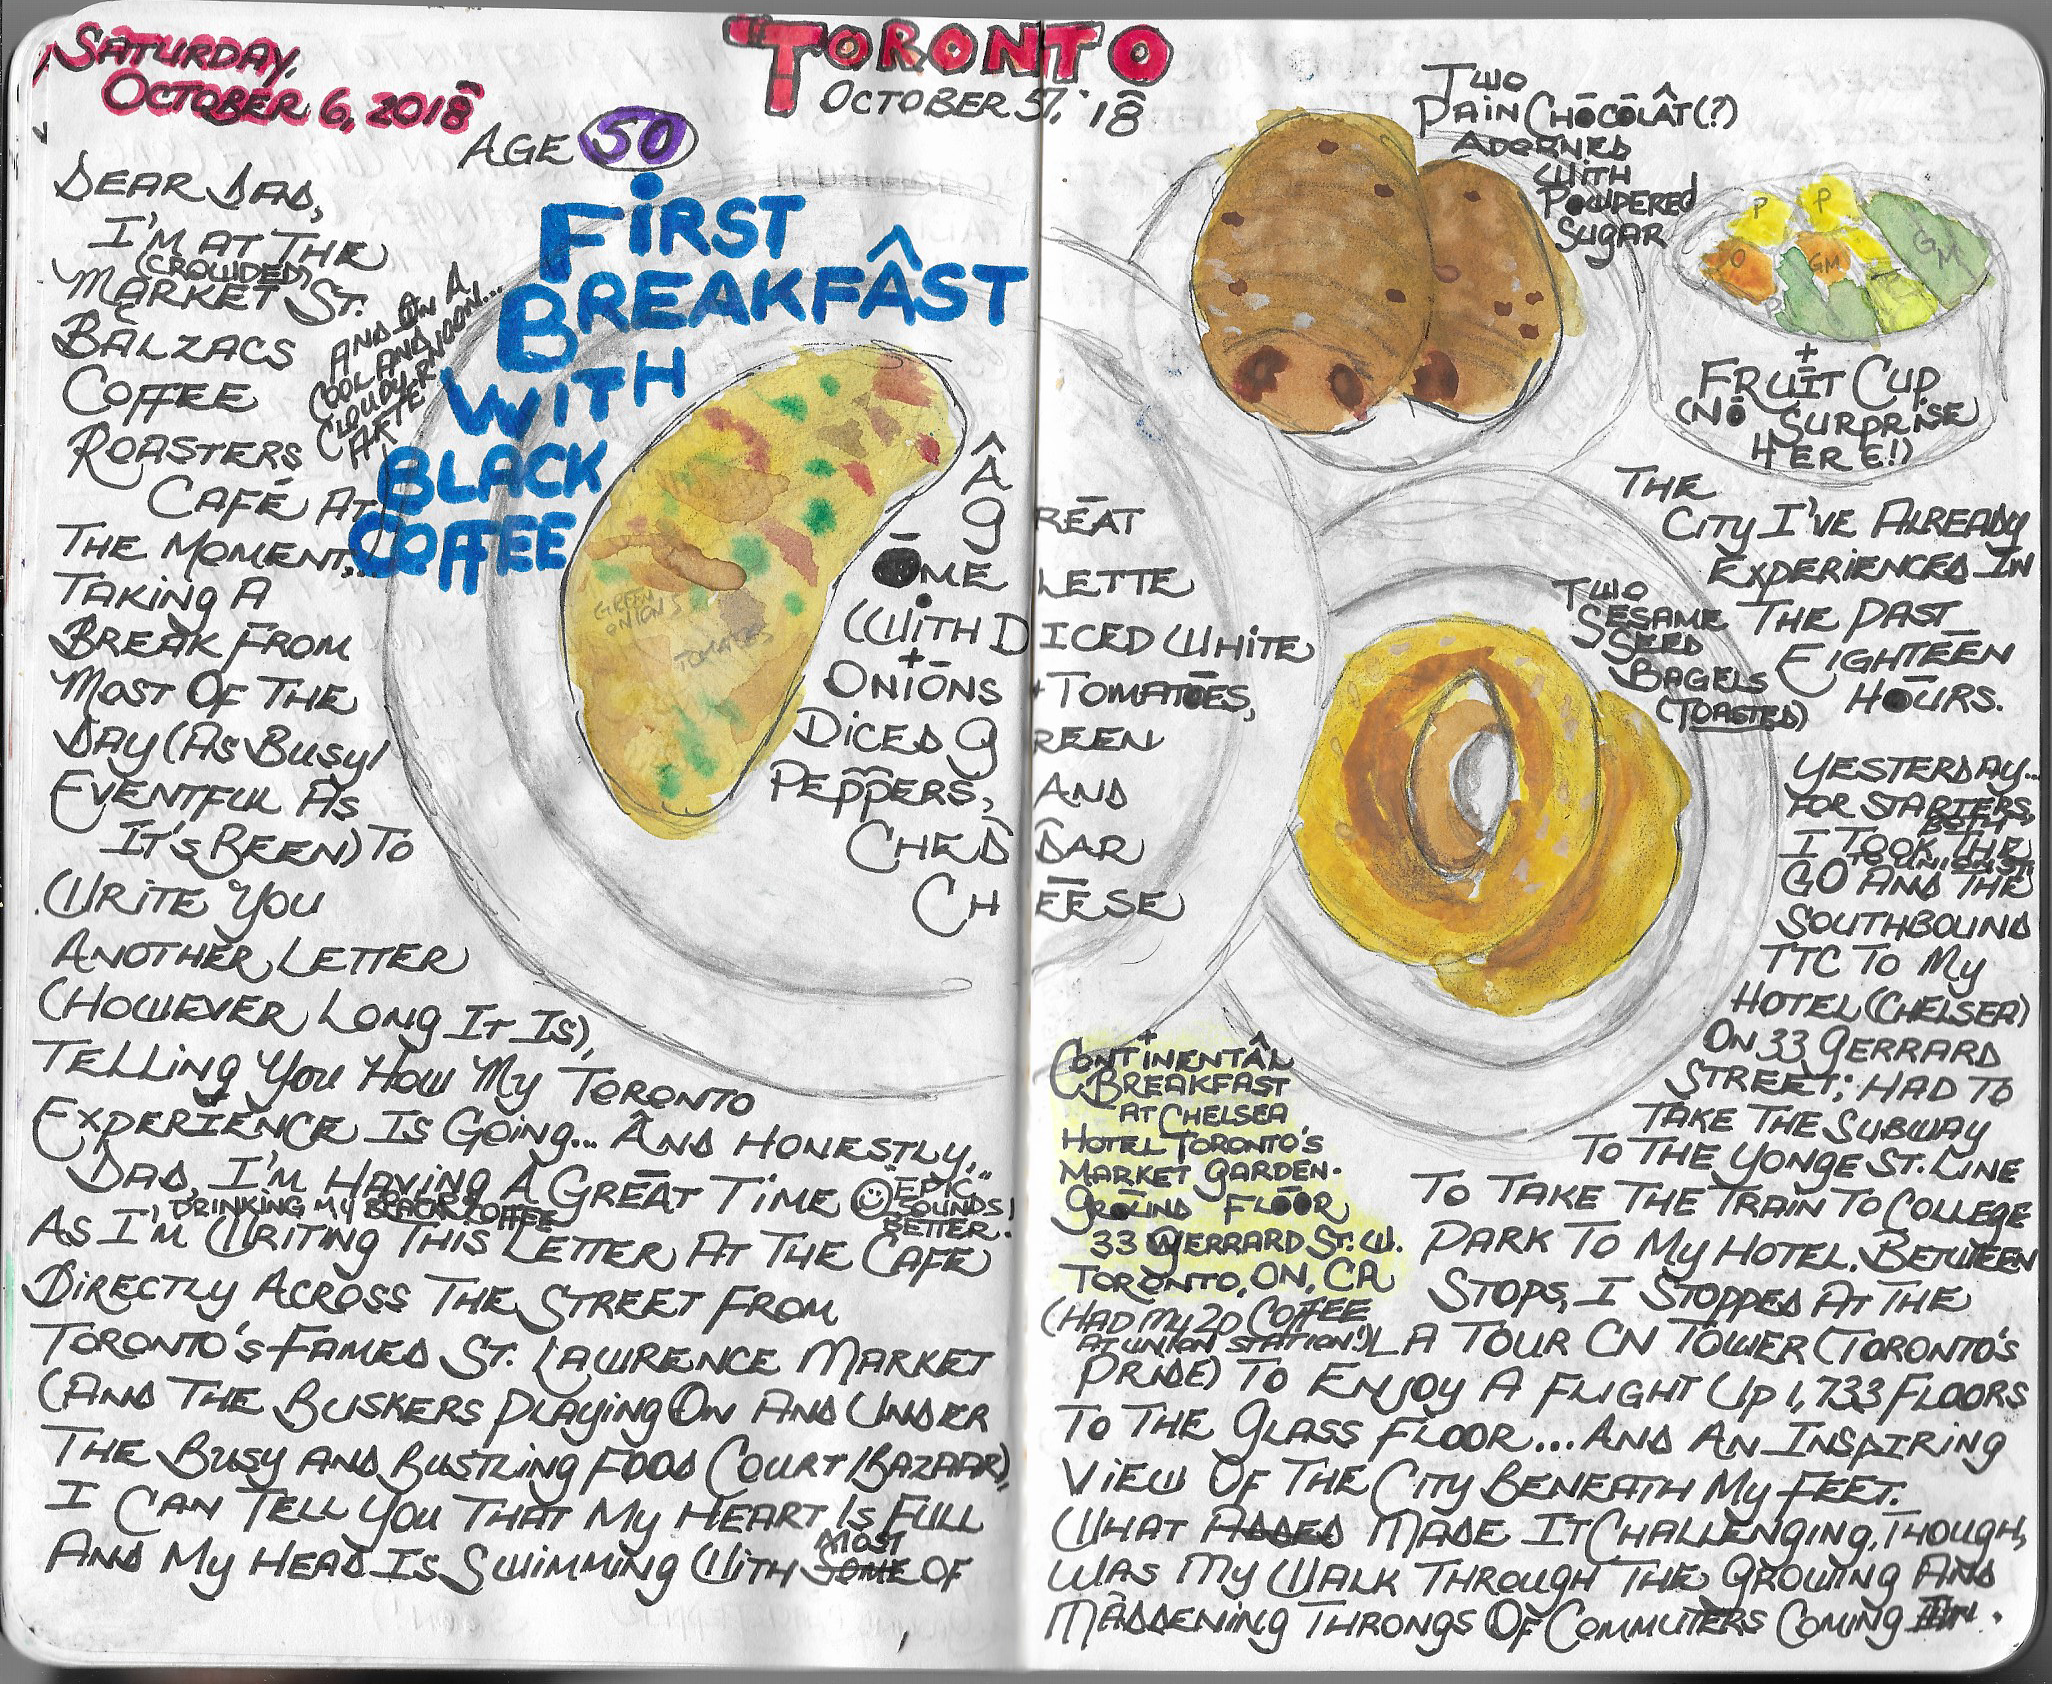 SATURDAY,
OCTOBER 6, 2018
TORONTO
OCTOBER 5, '18
AGE 50
FIRST
BREAKFAST
WITH
BLACK
COFFEE
DEAR DAD,
I'M AT THE
(CROWDED)
MARKET ST.
BALZACS
COFFEE
ROASTERS
CAFÉ AT
THE MOMENT,
AND ON A
COOL AND
CLOUDY
AFTERNOON...
TAKING A
BREAK FROM
MOST OF THE
DAY (AS BUSY/
EVENTFUL AS
IT'S BEEN) TO
WRITE YOU
ANOTHER LETTER
(HOWEVER LONG IT IS),
TELLING YOU HOW MY TORONTO
EXPERIENCE IS GOING... AND HONESTLY,
DAD, I'M HAVING A GREAT TIME "EPIC"
SOUNDS
BETTER!
DRINKING MY BLACK COFFEE
AS I'M WRITING THIS LETTER AT THE CAFE
DIRECTLY ACROSS THE STREET FROM
TORONTO'S FAMED ST. LAWRENCE MARKET
(AND THE BUSKERS PLAYING ON AND UNDER
THE BUSY AND BUSTLING FOOD COURT/BAZAAR),
I CAN TELL YOU THAT MY HEART IS FULL
AND MY HEAD IS SWIMMING WITH SOME MOST OF
GREEN
ONIONS
TOMATOES
Â
GREAT
OMELETTE
(WITH DICED WHITE
ONIONS + TOMATOES,
DICED GREEN
PEPPERS, AND
CHEDDAR
CHEESE
TWO
PAIN CHOCOLÂT(?)
ADORNED
WITH
POWDERED
SUGAR
P
P
GM
O
GM
+
FRUIT CUP
(NO SURPRISE
HERE!)
TWO
SESAME
SEED
BAGELS
(TOASTED)
+
CONTINENTAL
BREAKFAST
AT CHELSEA
HOTEL TORONTO'S
MARKET GARDEN.
GROUND FLOOR
33 GERRARD ST. W.
TORONTO, ON, CA
(HAD MY 2D COFFEE
AT UNION STATION!)
THE
CITY I'VE ALREADY
EXPERIENCED IN
THE PAST
EIGHTEEN
HOURS.
YESTERDAY...
FOR STARTERS,
I TOOK BOTH THE
GO AND THE
SOUTHBOUND
TTC TO MY
HOTEL (CHELSEA)
ON 33 GERRARD
STREET; HAD TO
TAKE THE SUBWAY
TO THE YONGE ST. LINE
TO TAKE THE TRAIN TO COLLEGE
PARK TO MY HOTEL. BETWEEN
STOPS, I STOPPED AT THE
LA TOUR CN TOWER (TORONTO'S
PRIDE) TO ENJOY A FLIGHT UP 1,733 FLOORS
TO THE GLASS FLOOR... AND AN INSPIRING
VIEW OF THE CITY BENEATH MY FEET.
WHAT ADDED MADE IT CHALLENGING, THOUGH,
WAS MY WALK THROUGH THE GROWING AND
MADDENING THRONGS OF COMMUTERS COMING